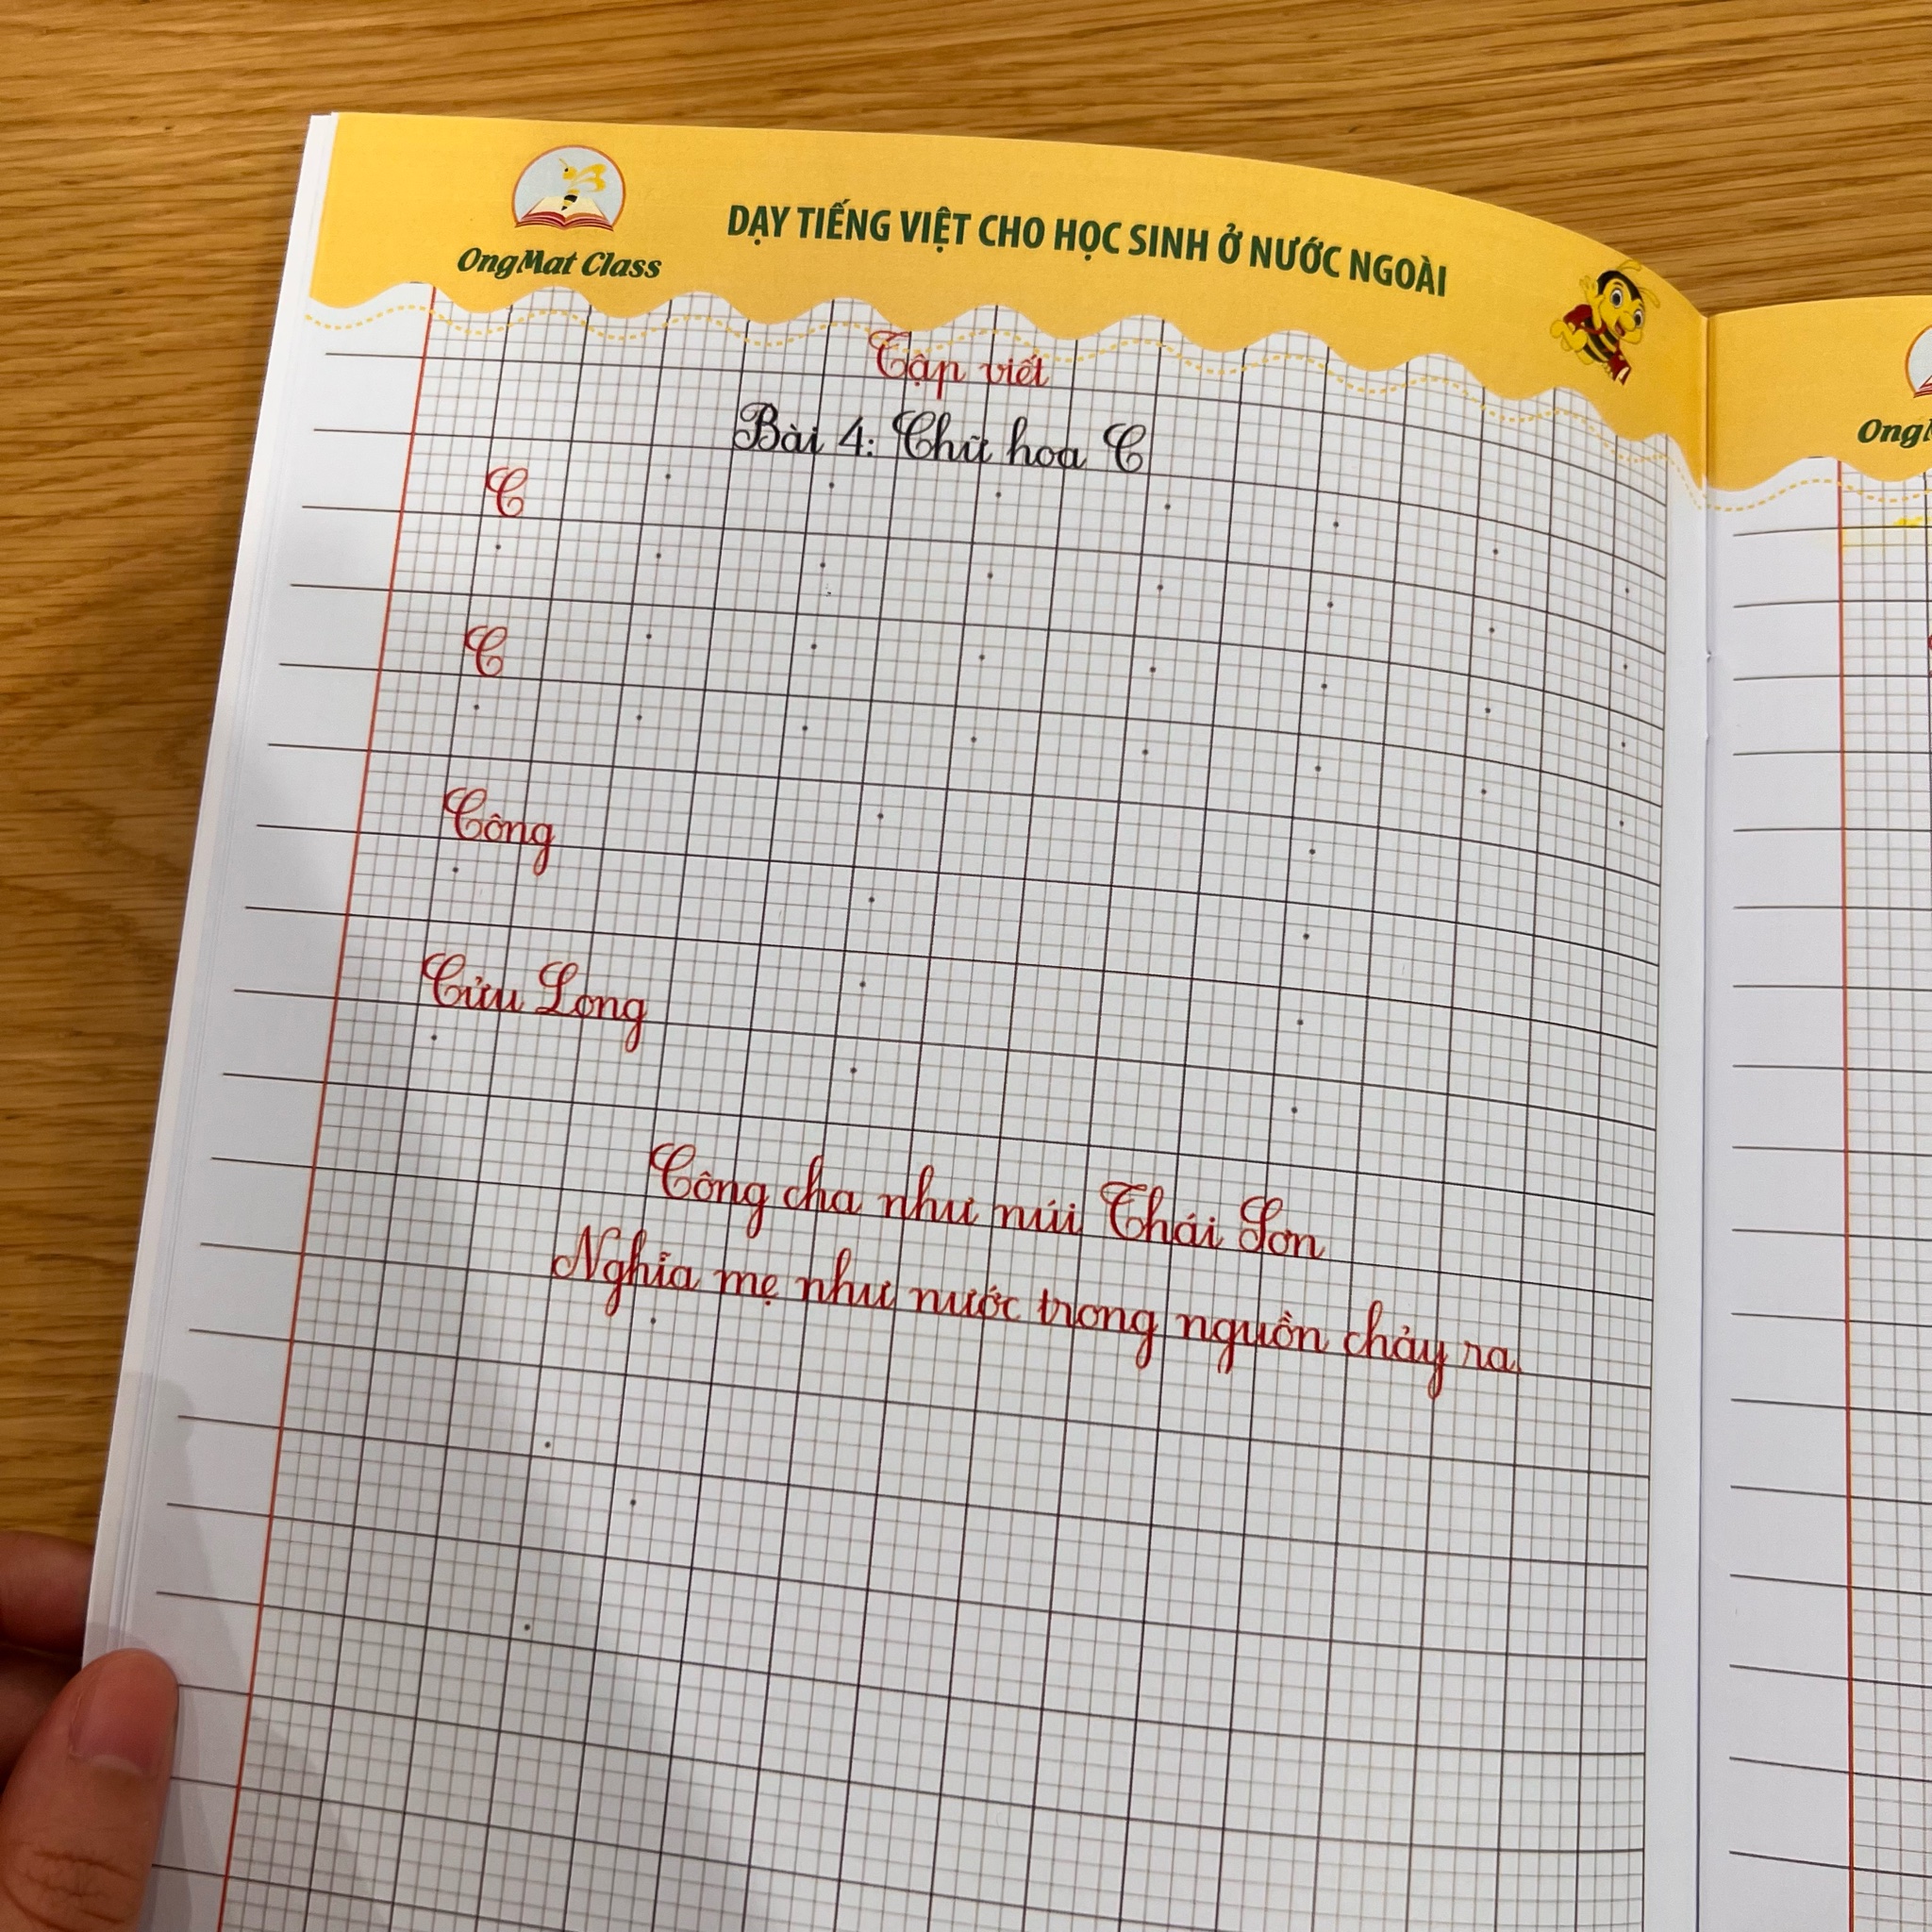 OngMat Class
DẠY TIẾNG VIỆT CHO HỌC SINH Ở NƯỚC NGOÀI
Tập viết
Bài 4: Chữ hoa C
C
C
Công
Cửu Long
Công cha như núi Thái Sơn
Nghĩa mẹ như nước trong nguồn chảy ra